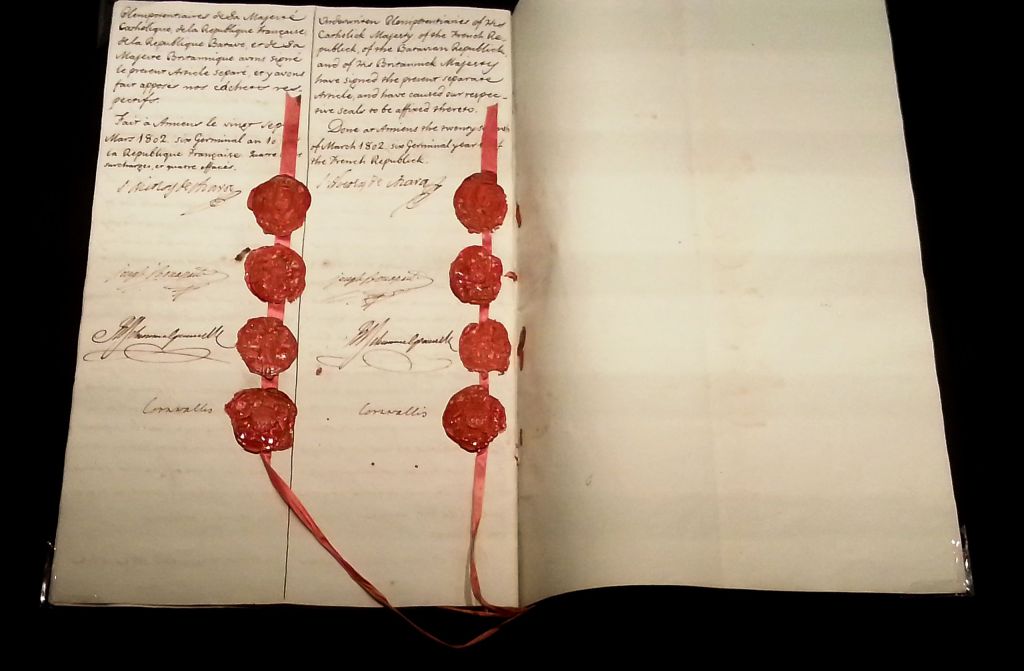 Plenipotentiaires de Sa Majesté
Catholique, de la Republique Française,
de la Republique Batave, et de Sa
Majesté Britannique avons signé
le present Article separé, et y avons
fait apposer nos cachets res-
pectifs.
Fait à Amiens le vingt sep
Mars 1802. six Germinal an 10
la Republique Française quatre
surchargés, et quatre effacés.
Joseph Bonaparte
RJSchimmelpenninck
Cornwallis
Underwritten Plenipotentiaries of His
Catholick Majesty, of the French Re-
publick, of the Batavian Republick,
and of His Britannick Majesty
have signed the present separate
Article, and have caused our respec-
tive seals to be affixed thereto.
Done at Amiens the twenty
of March 1802. six Germinal year
the French Republick.
Joseph Bonaparte
RJSchimmelpenninck
Cornwallis